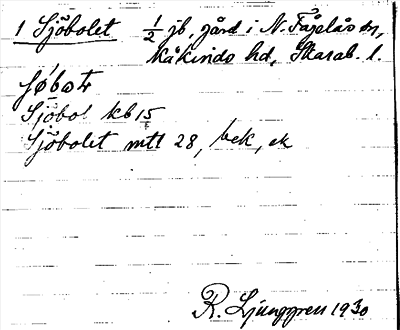 1 Sjöbolet 1/2 jb, gård i N. Fågelås sn,
Kåkinds hd, Skarab. l.
Sjöbol kb 15
Sjöbolet mtl 28, bek, ek
R. Ljunggren 1930